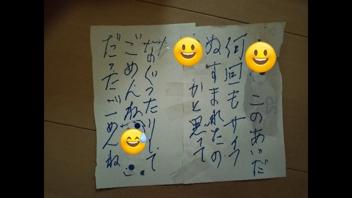 このあいだ
何回もサイフ
ぬすまれたの
かと思って
なぐったりして
ごめんね
だったごめんね